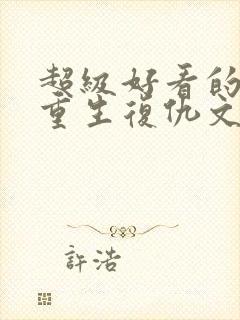 超級好看的
重生復仇文
許浩